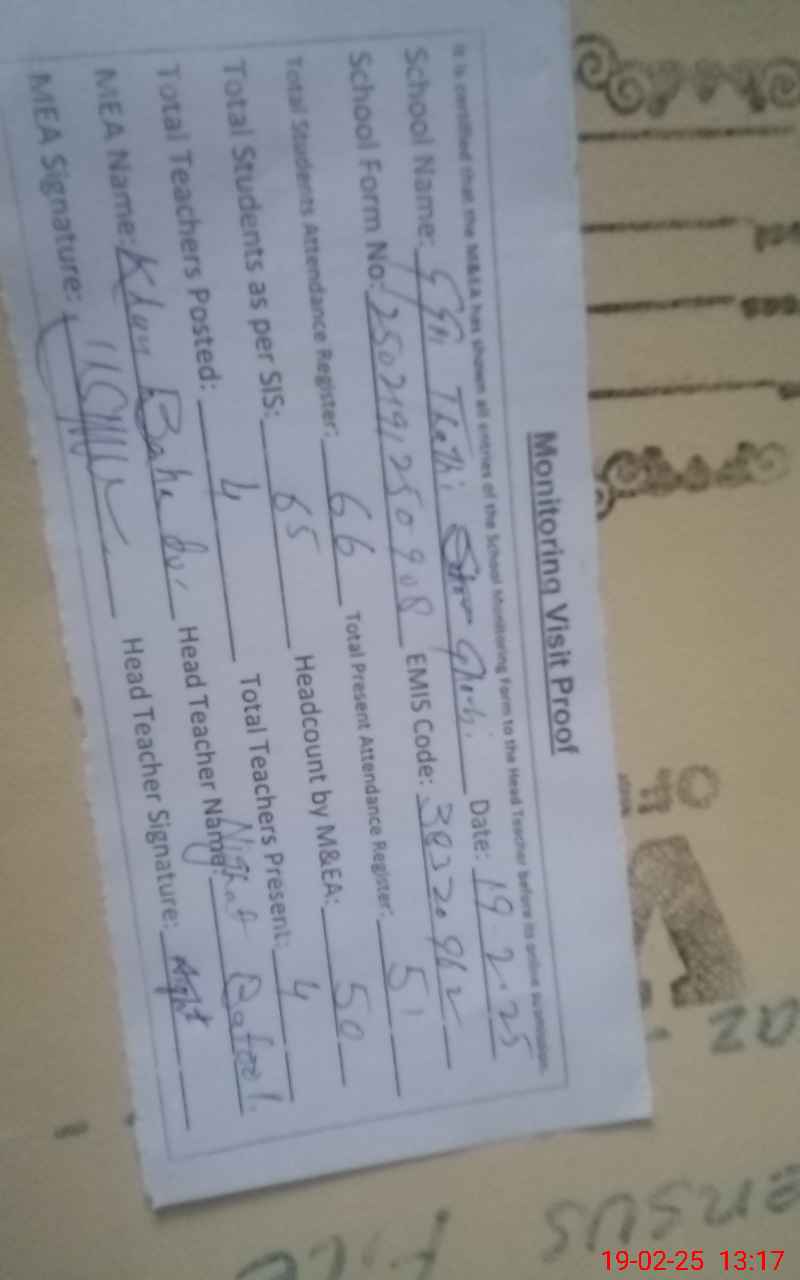 Monitoring Visit Proof
It is certified that the M&EA has shown all entries of the School Monitoring Form to the Head Teacher before its online submission.
School Name: Thathi Date: 19-2-25
School Form No: 2502191250908 EMIS Code:
Total Students Attendance Register: 66 Total Present Attendance Register: 51
Total Students as per SIS: 65 Headcount by M&EA: 50
Total Teachers Posted: 4 Total Teachers Present: 4
MEA Name: Khan Bahadur Head Teacher Name: Nighat Batool
MEA Signature: Head Teacher Signature: Night
ensus
19-02-25 13:17